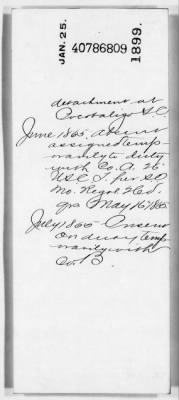 JAN. 25.
40786809
1899.
detachment at
Pocotaligo S.C.
June 1865. absent
assigned temp-
orarily to duty
with Co. A. 26"
USC T. per SO
No. Regtl Hed.
qrs May 16, 1865
July 1865 Present
On duty, temp-
orarily with
Co. B